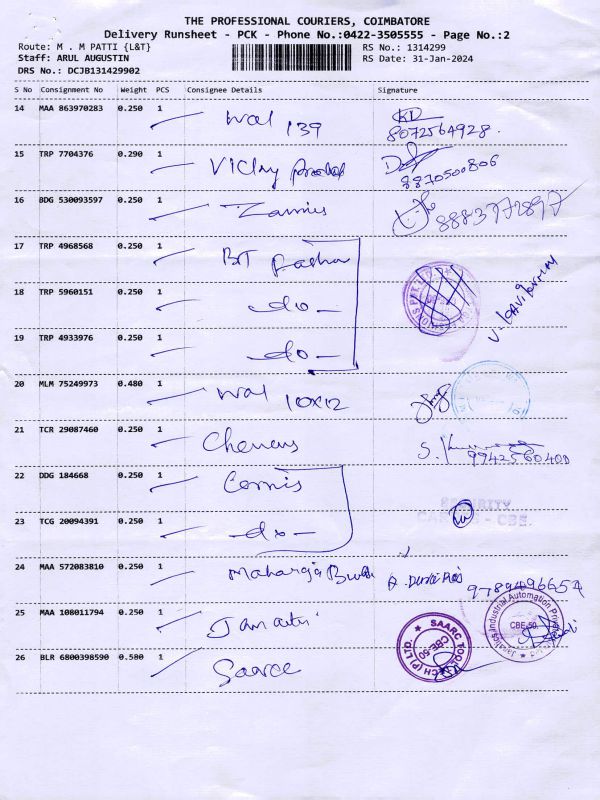 THE PROFESSIONAL COURIERS, COIMBATORE
Delivery Runsheet - PCK - Phone No.:0422-3505555 - Page No.:2
Route: M . M PATTI {L&T} RS No.: 1314299
Staff: ARUL AUGUSTIN RS Date: 31-Jan-2024
DRS No.: DCJB131429902
S No Consignment No Weight PCS Consignee Details Signature
14 MAA 863970283 0.250 1 Wal 139
8072564928.
15 TRP 7704376 0.290 1 Vicky
8870500806
16 BDG 530093597 0.250 1
8883772897
17 TRP 4968568 0.250 1 BT
18 TRP 5960151 0.250 1 - do -
19 TRP 4933976 0.250 1 - do -
20 MLM 75249973 0.480 1 Wal 10x12
21 TCR 29087460 0.250 1
S.
9942560400
22 DDG 184668 0.250 1
SECURITY
- CBE.
23 TCG 20094391 0.250 1 - do -
24 MAA 572083810 0.250 1 Maharaja
9789496654
25 MAA 108011794 0.250 1
Industrial Automation
CBE-50.
26 BLR 6800398590 0.580 1 Saarc
SAARC TOOL TECH (P) LTD.
CBE-50